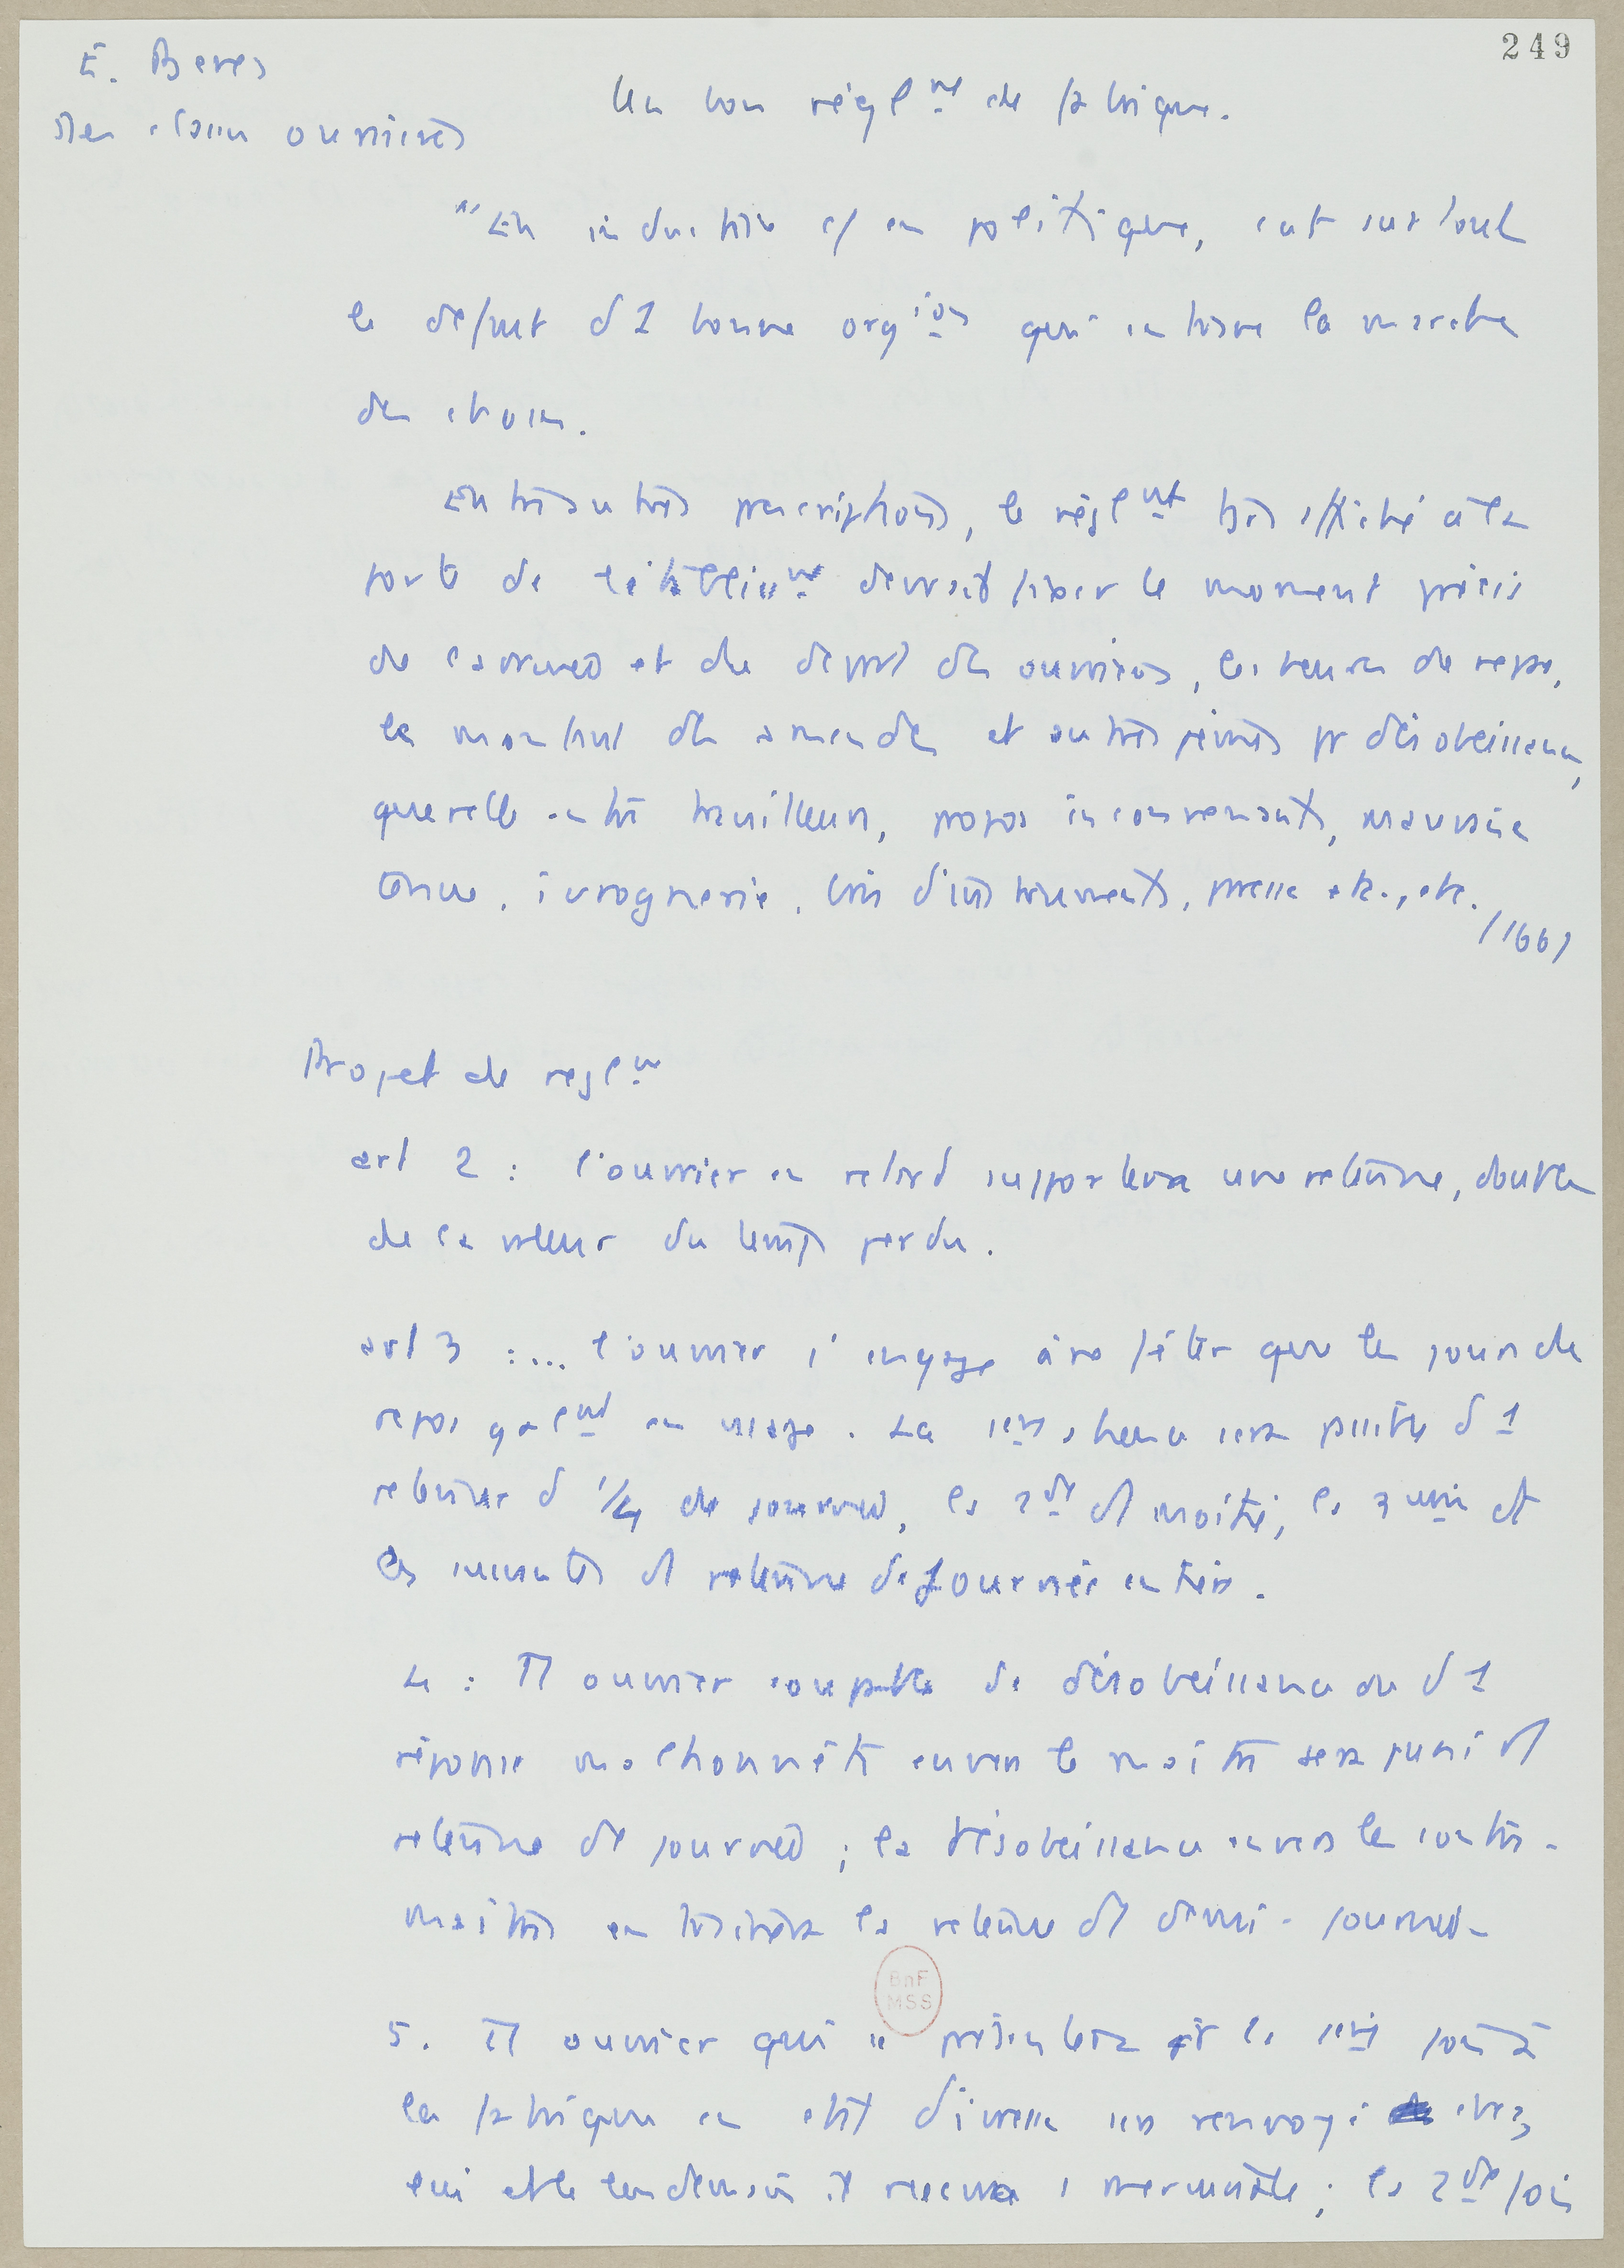 249
E. Beres
Les classes ouvrières
Un bon régl^me de fabrique.
"En industrie c/ en politique, c'est surtout
le défaut d'1 bonne org^ion qui entrave la marche
des choses.
Entre autres prescriptions, le régl^mt très affiché à la
porte de l'établiss^me devrait fixer le moment précis
de l'arrivée et du départ des ouvriers, les heures de repos,
le montant des amendes et autres peines pr désobéissance,
querelle entre travailleurs, propos inconvenants, mauvaise
tenue, ivrognerie, bris d'instruments, paresse etc., etc.
/166/
Projet de regl^me
art 2 : l'ouvrier en retard supportera une retenue, double
de la valeur du temps perdu.
art 3 :... l'ouvrier s'engage à ne fêter que les jours de
repos gal^mt en usage. La 1ère absence sera punie d'1
retenue d'1/4 de journée, la 2de d'1 moitié, la 3ème et
les suivantes d'1 retenue de journée entière.
4 : Tt ouvrier coupable de désobéissance ou d'1
réponse malhonnête envers le maître sera puni d'1
retenue de journée ; la désobéissance envers les contre-
maîtres entraînera la retenue d'1 demi-journée
5. Tt ouvrier qui se présentera pr la 1ère fois à
la fabrique en état d'ivresse sera renvoyé chez
lui et le lendemain il recevra 1 mercuriale ; la 2de fois
BnF
MSS